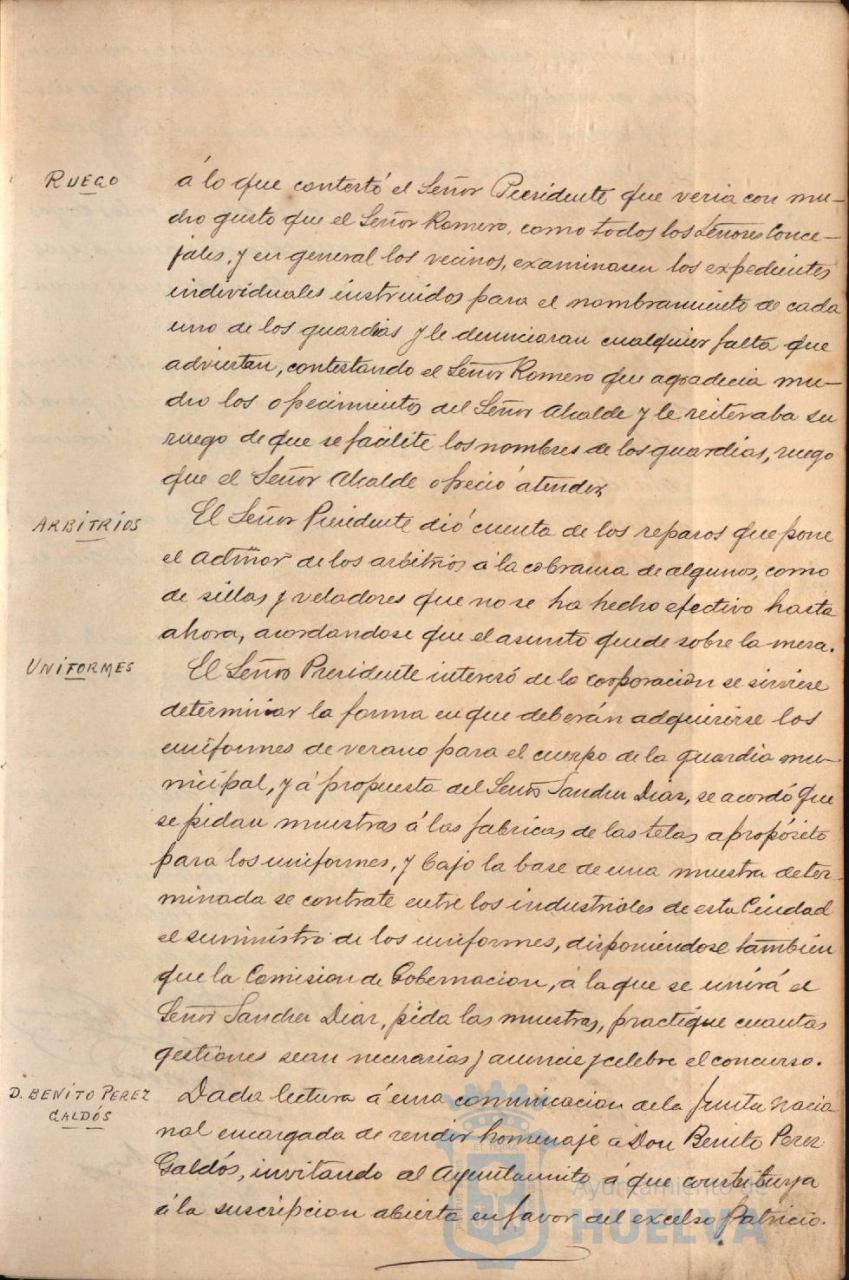 RUEGO
á lo que contestó el Señor Presidente que veria con mu-
cho gusto que el Señor Romero, como todos los Señores Conce-
jales, y en general los vecinos, examinasen los expedientes
individuales instruidos para el nombramiento de cada
uno de los guardias y le denunciaran cualquier falta que
adviertan, contestando el Señor Romero que agradecia mu-
cho los ofrecimientos del Señor Alcalde y le reiteraba su
ruego de que se facilite los nombres de los guardias, ruego
que el Señor Alcalde ofreció atender.
ARBITRIOS
El Señor Presidente dió cuenta de los reparos que pone
el Admor de los arbitrios á la cobranza de algunos, como
de sillas y veladores que no se ha hecho efectivo hasta
ahora, acordandose que el asunto quede sobre la mesa.
UNIFORMES
El Señor Presidente interesó de la corporacion se sirviese
determinar la forma en que deberán adquirirse los
uniformes de verano para el cuerpo de la guardia mu-
nicipal, y á propuesta del Señor Sanchez Diaz, se acordó que
se pidan muestras á las fabricas de las telas apropósito
para los uniformes, y bajo la base de una muestra deter-
minada se contrate entre los industriales de esta Ciudad
el suministro de los uniformes, disponiéndose también
que la Comision de Gobernacion, á la que se unirá el
Señor Sanchez Diaz, pida las muestras, practique cuantas
gestiones sean necesarias y anuncie y celebre el concurso.
D. BENITO PEREZ
GALDÓS
Dada lectura á una comunicacion de la Junta nacio
nal encargada de rendir homenaje á Don Benito Perez
Galdós, invitando al Ayuntamiento á que contribuya
á la suscripcion abierta en favor del excelso Patricio.
Ayuntamiento de
HUELVA